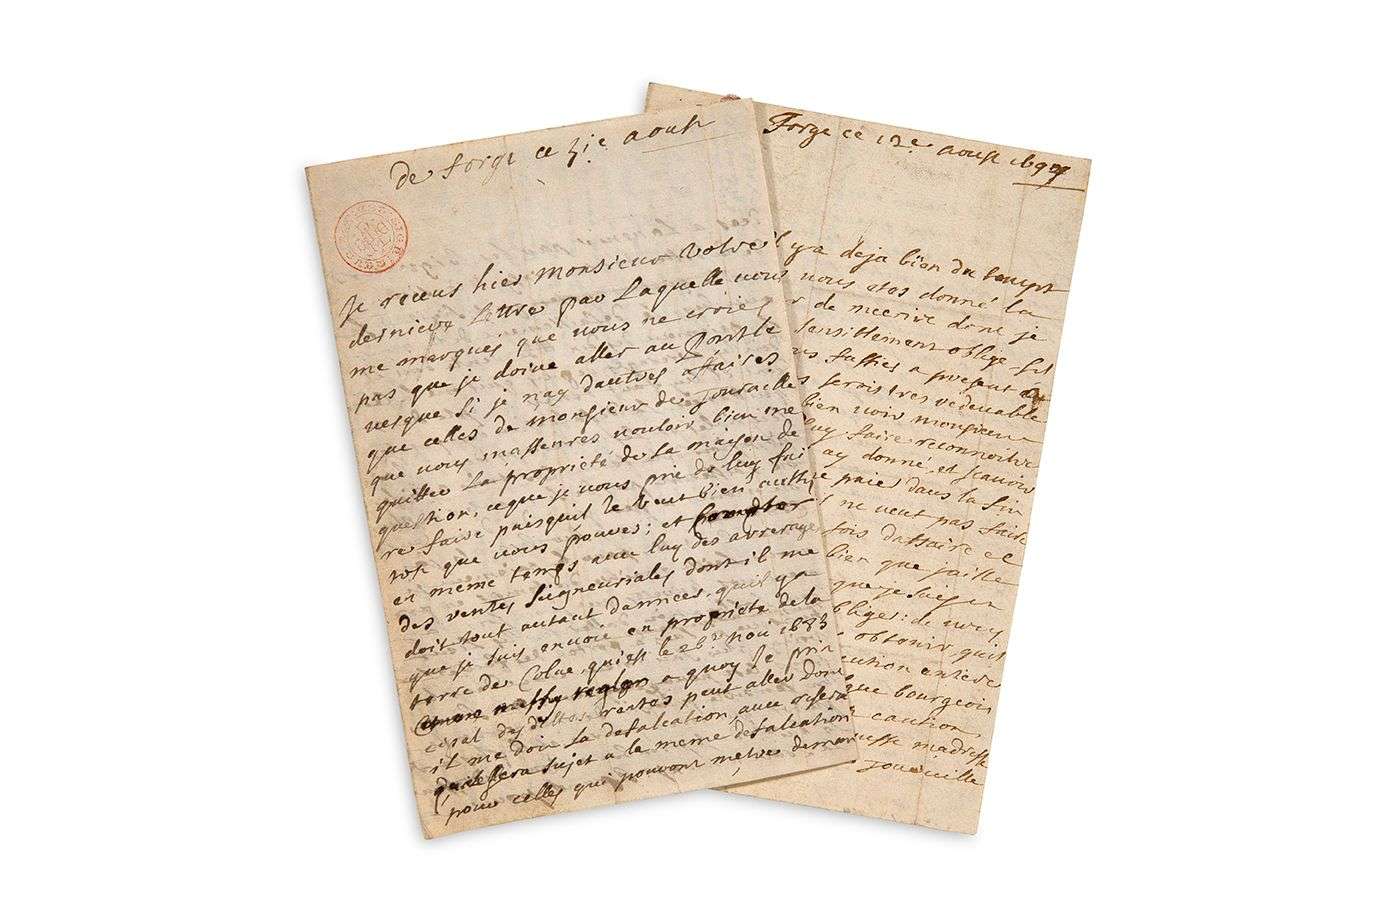 de forge ce 31e aoust
Je receus hier Monsieur votre
derniere Lettre par Laquelle vous
me marqués que vous ne croiés
pas que je doive aller au Pontle
uesque si je nay dautres affaires
que celles de monsieur de
que vous massenres vouloir bien me
quitter La propriété de La maison de
question, ceque je vous prie de luy fai
re faire puisquil le veut bien aussy
tost que vous pouves; et
en meme temps avec luy des arrerages
des ventes Seigneuriales dont il me
doit tout autant dannees, quil ya
que je suis envoié en propriete de la
terre de Colue, qui est le 26e Nov 1683
a quoy le prin
cipal desdittes rentes peut aller dont
il me doit La defalcation, avec
sera sujet a la meme defalcation
pour celles qui pouvont
Forge ce 12e aoust 1697
il ya deja bien du tempt
nous etes donné la
de mecrire dont je
sensiblement oblige sil
fassies a present
seroistres redeuable
bien voir monsieur
luy faire reconnoitre
ay donné, et scavoir
paier dans la fin
ne veut pas faire
fois daffaire et
bien que jaille
que je
obliger: de
obtenir, quil
caution entiere
que bourgeois
caution
madresse